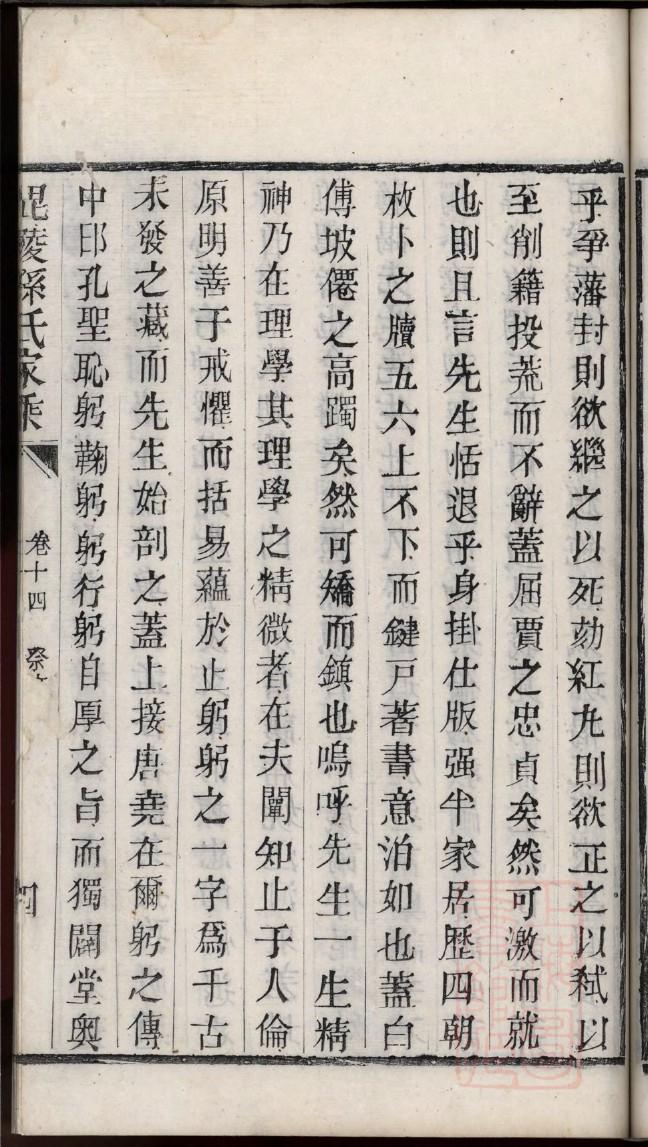 乎爭藩封則欲繼之以死劾紅丸則欲正之以弑以
至削籍投荒而不辭蓋屈賈之忠貞矣然可激而就
也則且言先生恬退乎身掛仕版强半家居歷四朝
枚卜之牘五六上不下而鍵戸著書意泊如也蓋白
傅坡僊之高躅矣然可矯而鎮也嗚呼先生一生精
神乃在理學其理學之精微者在夫闡知止于人倫
原明善于戒懼而括易蘊於止躬躬之一字爲千古
未發之藏而先生始剖之蓋上接唐堯在爾躬之傳
中印孔聖恥躬鞠躬躬行躬自厚之旨而獨闢堂奧
毘陵孫氏家乘
卷十四
祭